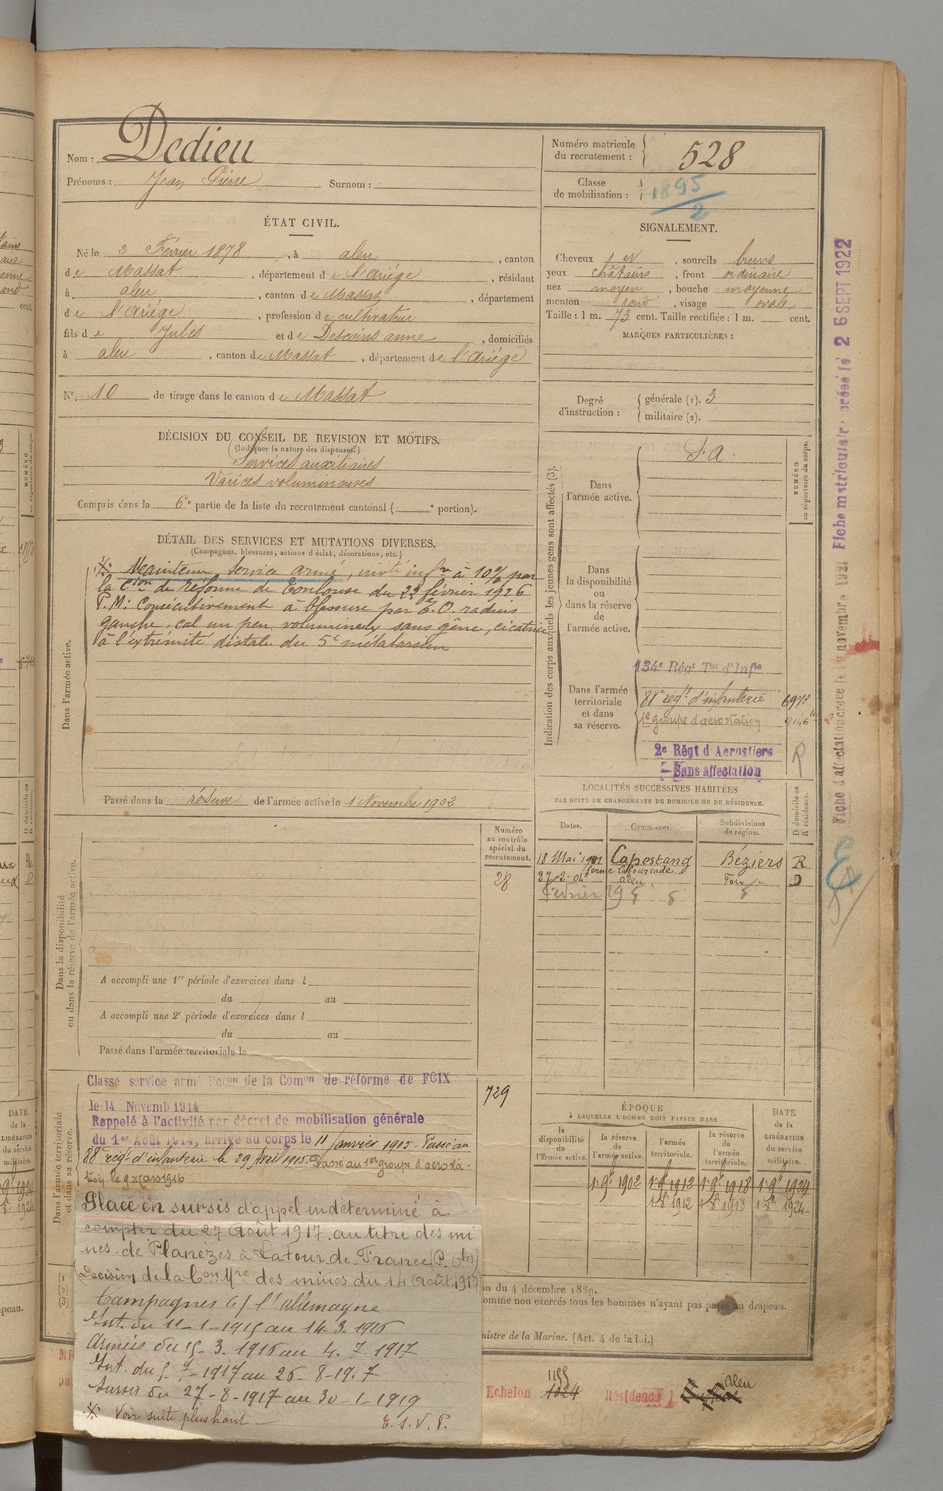 Nom : Dedieu
Prénoms : Jean Pierre Surnom :
Numéro matricule du recrutement : 528
Classe de mobilisation : 1895/2
ÉTAT CIVIL.
Né le 2 Février 1878, à aleu, canton
de Massat, département de l'Ariége, résidant
à aleu, canton de Massat, département
de l'Ariége, profession de cultivateur
fils de Jules et de Descoins anne, domiciliés
à aleu, canton de Massat, département de l'Ariége
N° 10 de tirage dans le canton de Massat
SIGNALEMENT.
Cheveux et, sourcils bruns
yeux châtains, front ordinaire
nez moyen, bouche moyenne
menton rond, visage ovale
Taille : 1 m. 73 cent. Taille rectifiée : 1 m. cent.
MARQUES PARTICULIÈRES :
Degré d'instruction : générale (1). 3
militaire (2).
DÉCISION DU CONSEIL DE REVISION ET MOTIFS.
(Indiquer la nature des dispenses.)
Services auxiliaires
Varices volumineuses
Compris dans la 6e partie de la liste du recrutement cantonal ( e portion).
DÉTAIL DES SERVICES ET MUTATIONS DIVERSES.
(Campagnes, blessures, actions d'éclat, décorations, etc.)
Maintenu service armé, invté infre à 10% par
la Cion de réforme de Toulouse du 22 février 1926
P.M: Consécutivement à blessure par E.O. radius
gauche. cal un peu volumineux sans gêne, cicatrice
à l'extrémité distale du 5e métatarsien
Dans l'armée active.
Passé dans la réserve de l'armée active le 1 Novembre 1902
Indication des corps auxquels les jeunes gens sont affectés (3).
NUMÉRO au répertoire du corps.
Dans l'armée active.
S.A.
Dans la disponibilité ou dans la réserve de l'armée active.
Dans l'armée territoriale et dans sa réserve.
134e Régt Tal d'Infie
88e regt d'infanterie 6972
1e groupe d'aerostation
2e Régt d'Aerostiers R
Sans affectation
LOCALITÉS SUCCESSIVES HABITÉES
PAR SUITE DE CHANGEMENTS DE DOMICILE OU DE RÉSIDENCE.
Dates. Communes. Subdivisions de région. D domicile ou R résidence.
18 Mai 1902 Capestang Béziers R
27-2-04 aleu Foix D
Février 19
Fiche d'affectation créée le novembre 1921 Fiche matriculaire créée le 26 SEPT 1922
Numéro au contrôle spécial du recrutement.
28
Dans la disponibilité ou dans la réserve de l'armée active.
A accompli une 1re période d'exercices dans l
du au
A accompli une 2e période d'exercices dans l
du au
Passé dans l'armée territoriale le
Dans l'armée territoriale et dans sa réserve.
Classe service armé Décon de la Comon de réforme de FOIX
le 14 Novemb 1914
729
Rappelé à l'activité par décret de mobilisation générale
du 1er Août 1914, arrivé au corps le 11 janvier 1915. Passé au
88e regt d'infanterie le 29 Avril 1915. Passe au 1er groupe d'aérosta-
tion le 9 Mars 1916
Placé en sursis d'appel indéterminé à
compter du 27 Août 1917. au titre des mi
nes de Planèzes à Latour de France (P. Oles)
Décision de la Con Mre des mines du 14 Août 1917
Campagnes c/ l'allemagne
Int. du 11-1-1915 au 14.3.1916
Armées du 15-3.1916 au 4.7.1917
Int. du 5-7-1917 au 26-8-1917
Sursis du 27-8-1917 au 30-1-1919
Voir suite plus haut
T.S.V.P.
ÉPOQUE
À LAQUELLE L'HOMME DOIT PASSER DANS
DATE de la LIBÉRATION du service militaire.
la disponibilité de l'armée active. la réserve de l'armée active. l'armée territoriale. la réserve de l'armée territoriale.
1 9e 1902 1 9e 1912 1 9e 1918 1 9e 1924
1 1912 1 1918 1 1924
on du 4 décembre 1889.
omme non exercés tous les hommes n'ayant pas passé au drapeau.
nistre de la Marine. (Art. 4 de la loi.)
Echelon 1024 Résidence Aleu